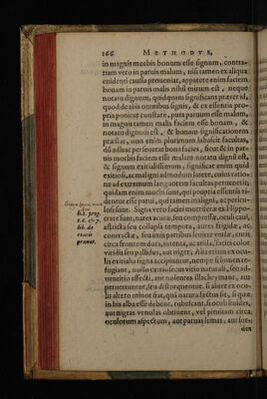 166 METHODVS,
in magnis morbis bonum esse signum, contra-
riam vero in paruis malum, nisi tamen ex aliqua
euidenti causa proueniat, apparere enim faciem
bonam in paruis malis nihil mirum est, neque
notatu dignum, quidquam significans præter id,
quod de aliis omnibus signis, & ex essentia pro-
pria ponitur constare, puta paruum esse malum,
in magnis tamen malis faciem esse bonam, &
notatu dignum est, & bonam significationem
præstat, non enim plurimum labascit facultas,
dũ adhuc perseuerat bona facies, sicut & in par-
uis morbis faciem esse malam notatu dignũ est,
& signum exitialissimum, significat enim quid
exitiosi, ac maligni admodum latere, cuius ratio-
ne ad extremum languorem facultas peruenerit,
quidam enim morbi sunt, qui propria essentia vi-
dentur esse parui, qui tamen maligni, ac pericu-
losi sunt. Signa vero faciei mortiferæ ex Hippo-
crate sunt, nares acutæ, seu compressæ, oculi caui,
astricta seu collapsa tempora, aures frigidæ, ac
contractæ, & suarum partibus leniter versis, cutis
circa frontem dura, intenta, ac arida, faciei color
viridis seu pallidus, aut niger, Alia etiam ex ocu-
lis exitialia signa accipiuntur, nempe si lumen re-
fugiant, nullo extrinsecus vitio naturali, seu ad-
uentitio affecti, aut nolentes illachrymant, aut
peruertuntur, seu distorquentur, si alter ex ocu-
lis altero minor fiat, qui natura factus sit, si quæ
in his alba esse debent, rubescant, si oculi liuidas,
aut nigras venulas obtinent, vel pituitam circa
oculorum aspectum, aut paruas lemas, aut sor-
des
lib. prog.
lib. de